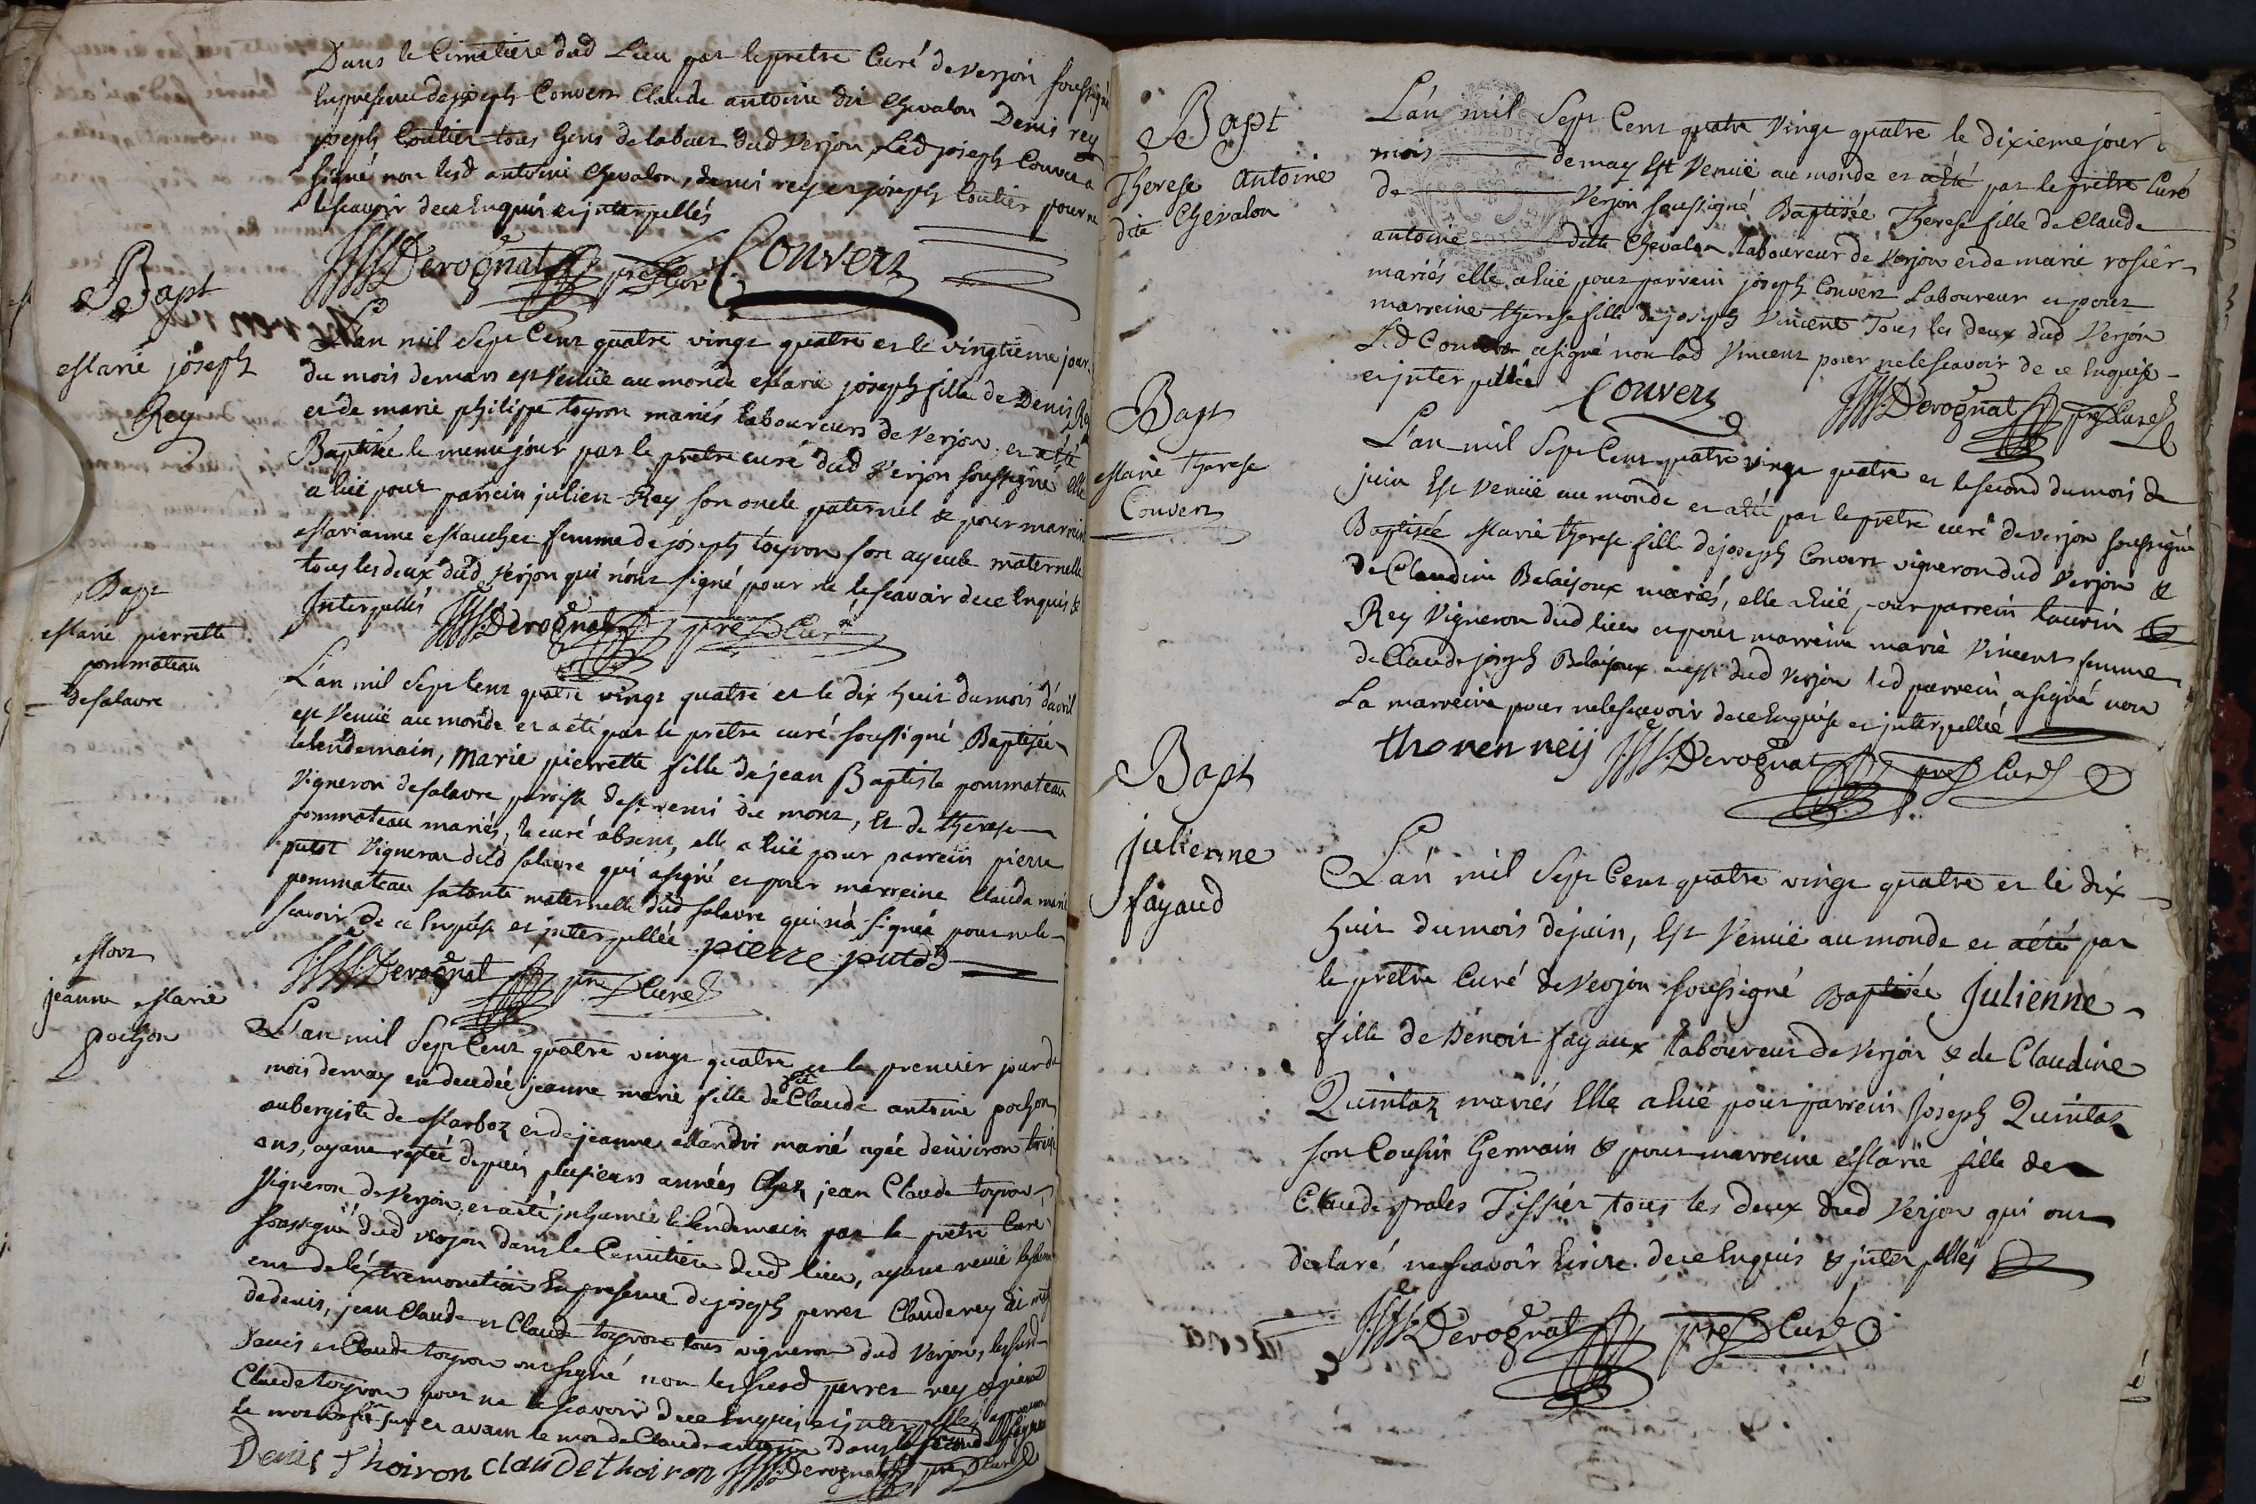 Dans le Cimetiere dud Lieu par le pretre Curé de Verjon soussigné
En presence de joseph Convers Claude antoine dit Chevalon Denis rey
joseph Coutier tous Gens de labeur dud Verjon, Led joseph Convers a
signé non lesd antoine Chevalon, denis rey et joseph Coutier pour ne
le scavoir de ce Enquis et jnterpellés
Derognat ptre Curé Convers
Bapt
Marie joseph
Rey
L'an mil Sept Cent quatre vingt quatre et le vingtieme jour
du mois de mars est Venüe au monde Marie joseph fille de Denis Rey
et de marie philippe toyron mariés laboureurs de Verjon, et a été
Baptisée le meme jour par le pretre curé dud Verjon soussigné elle
a hüe pour parrein julien Rey son oncle paternel & pour marreine
Marianne Maucher femme de joseph toyron son ayeule maternelle
tous les deux dud Verjon qui n'ont signé pour ne le scavoir de ce Enquis &
Jnterpellés Derognat ptre Curé
Bapt
Marie pierrette
pommateau
de salavre
L'an mil Sept Cent quatre vingt quatre et le dix huit du mois d'avril
est Venüe au monde et a été par le pretre curé soussigné Baptisée
le lendemain, Marie pierrette fille de jean Baptiste pommateau
Vigneron de salavre parroisse de st remi du mont, Et de therese
pommateau mariés, le curé absent, elle a hüe pour parrein pierre
putod Vigneron dud salavre qui a signé et pour marreine Clauda marie
pommateau sa tante maternelle dud salavre qui n'a signée pour ne le
scavoir de ce Enquise et jnterpellée pierre putod
Derognat ptre Curé
Mort
jeanne Marie
pochon
L'an mil Sept Cent quatre vingt quatre et le premier jour du
mois de may est decedée jeanne marie fille de Claude antoine pochon
aubergiste de Marboz et de jeanne Mandri marié agée d'environ trois
ans, ayant restée depuis plusieurs années Chez jean Claude toyron
Vigneron de Verjon, et a été jnhumée le lendemain par le pretre Curé
soussigné dud verjon dans le Cemitiere dud lieu, ayant
de l'extremonction En presence de joseph perret Claude rey
de denis, jean Claude et Claude toyron tous vigneron dud Verjon, lesd
Denis et Claude toyron ont signé non les susd perret rey &
Claude toyron pour ne le scavoir de ce Enquis et jnterpellés
le mot et avant le mot de Claude antoine dans la seconde ligne
Denis Thoiron claude thoiron Derognat ptre Curé
Bapt
Therese antoine
dite Chevalon
L'an mil Sept Cent quatre Vingt quatre le dixieme jour
mois de may Est Venüe au monde et a été par le pretre Curé
de Verjon soussigné Baptisée Therese fille de Claude
antoine ditte Chevalon laboureur de Verjon et de marie rosier
mariés elle a hüe pour parrein joseph Convers Laboureur et pour
marreine therese fille de joseph Vincent Tous les deux dud Verjon
Led Convers a signé non lad Vincent pour ne le scavoir de ce Enquise
et jnterpellée Convers Derognat ptre Curé
Bapt
Marie therese
Convers
L'an mil Sept Cent quatre vingt quatre et le second du mois de
juin Est Venüe au monde et a été par le pretre curé de verjon soussigné
Baptisée Marie therese fille de joseph Convers vigneron dud Verjon &
de Claudine Belaisoux mariés, elle a hüe pour parrein laurin
Rey Vigneron dud lieu et pour marreine marie Vincent femme
de Claude joseph Belaisoux aussi dud verjon led parrein a signé non
La marreine pour ne le scavoir de ce Enquise et jnterpellée
thoren reij Derognat ptre Curé
Bapt
julienne
fayaud
L'an mil Sept Cent quatre vingt quatre et le dix
huit du mois de juin, Est Venüe au monde et a été par
le pretre Curé de Verjon soussigné Baptisée Julienne
fille de Benoit fayaux laboureur de Verjon & de Claudine
Quintaz mariés Elle a hüe pour parrein Joseph Quintaz
son Cousin Germain & pour marreine Marie fille de
Claude prales Tissier tous les deux dud Verjon qui ont
declaré ne scavoir Ecrire de ce Enquis & jnterpellés
Derognat ptre Curé